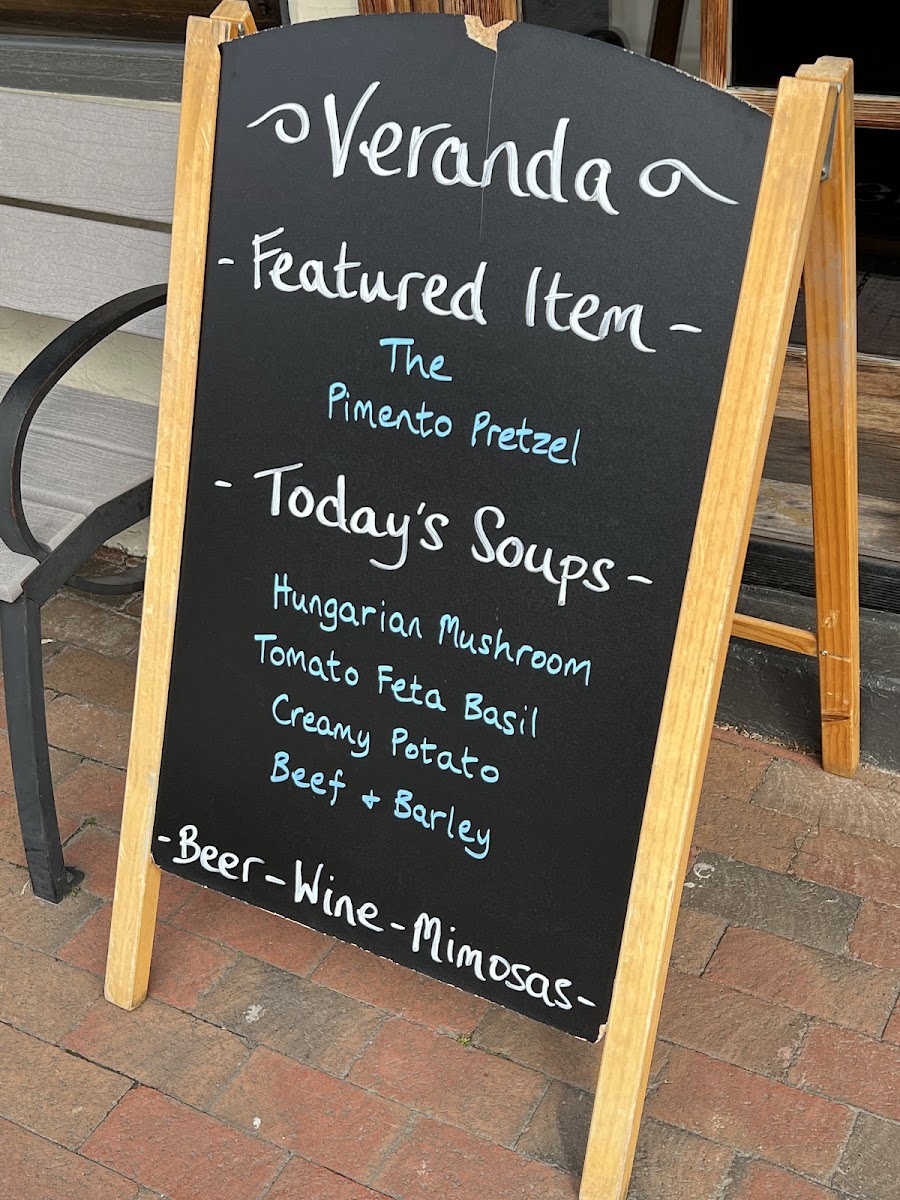 Veranda
- Featured Item -
The
Pimento Pretzel
- Today's Soups -
Hungarian Mushroom
Tomato Feta Basil
Creamy Potato
Beef + Barley
- Beer - Wine - Mimosas -